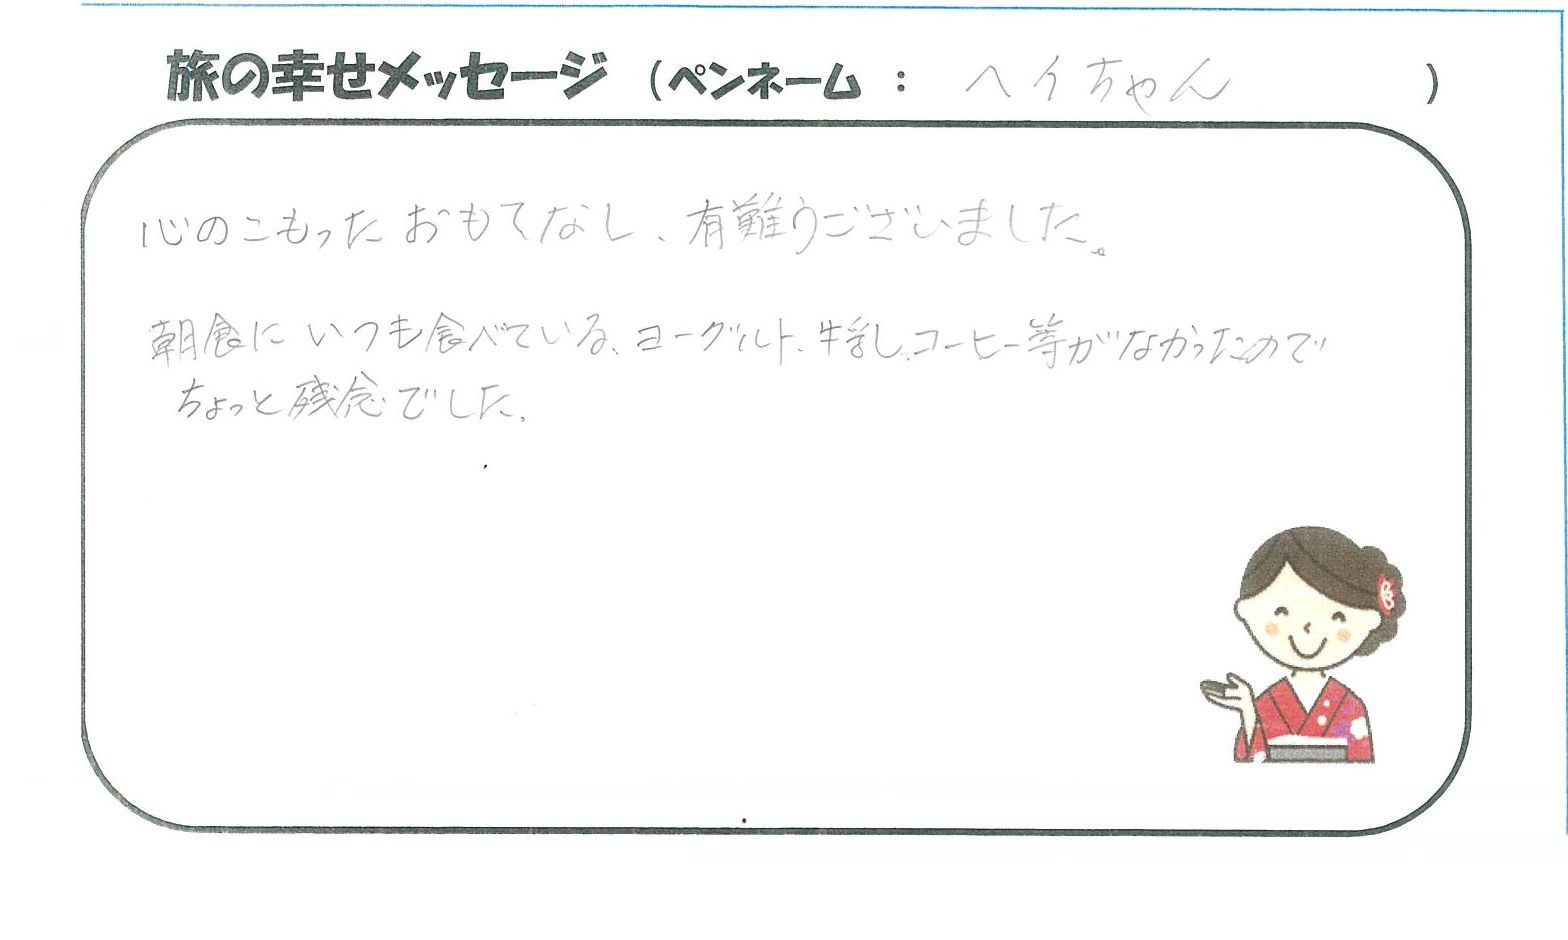 旅の幸せメッセージ (ペンネーム : ヘイちゃん )
心のこもった おもてなし、有難うございました。
朝食に いつも食べている、ヨーグルト、牛乳、コーヒー等がなかったので
ちょっと残念でした。